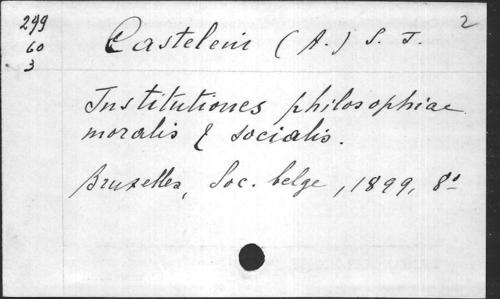 299
60
3
2
Castelein (A.) S. J.
Institutiones philosophiae
moralis & socialis.
Bruxelles, Soc. belge, 1899, 8°